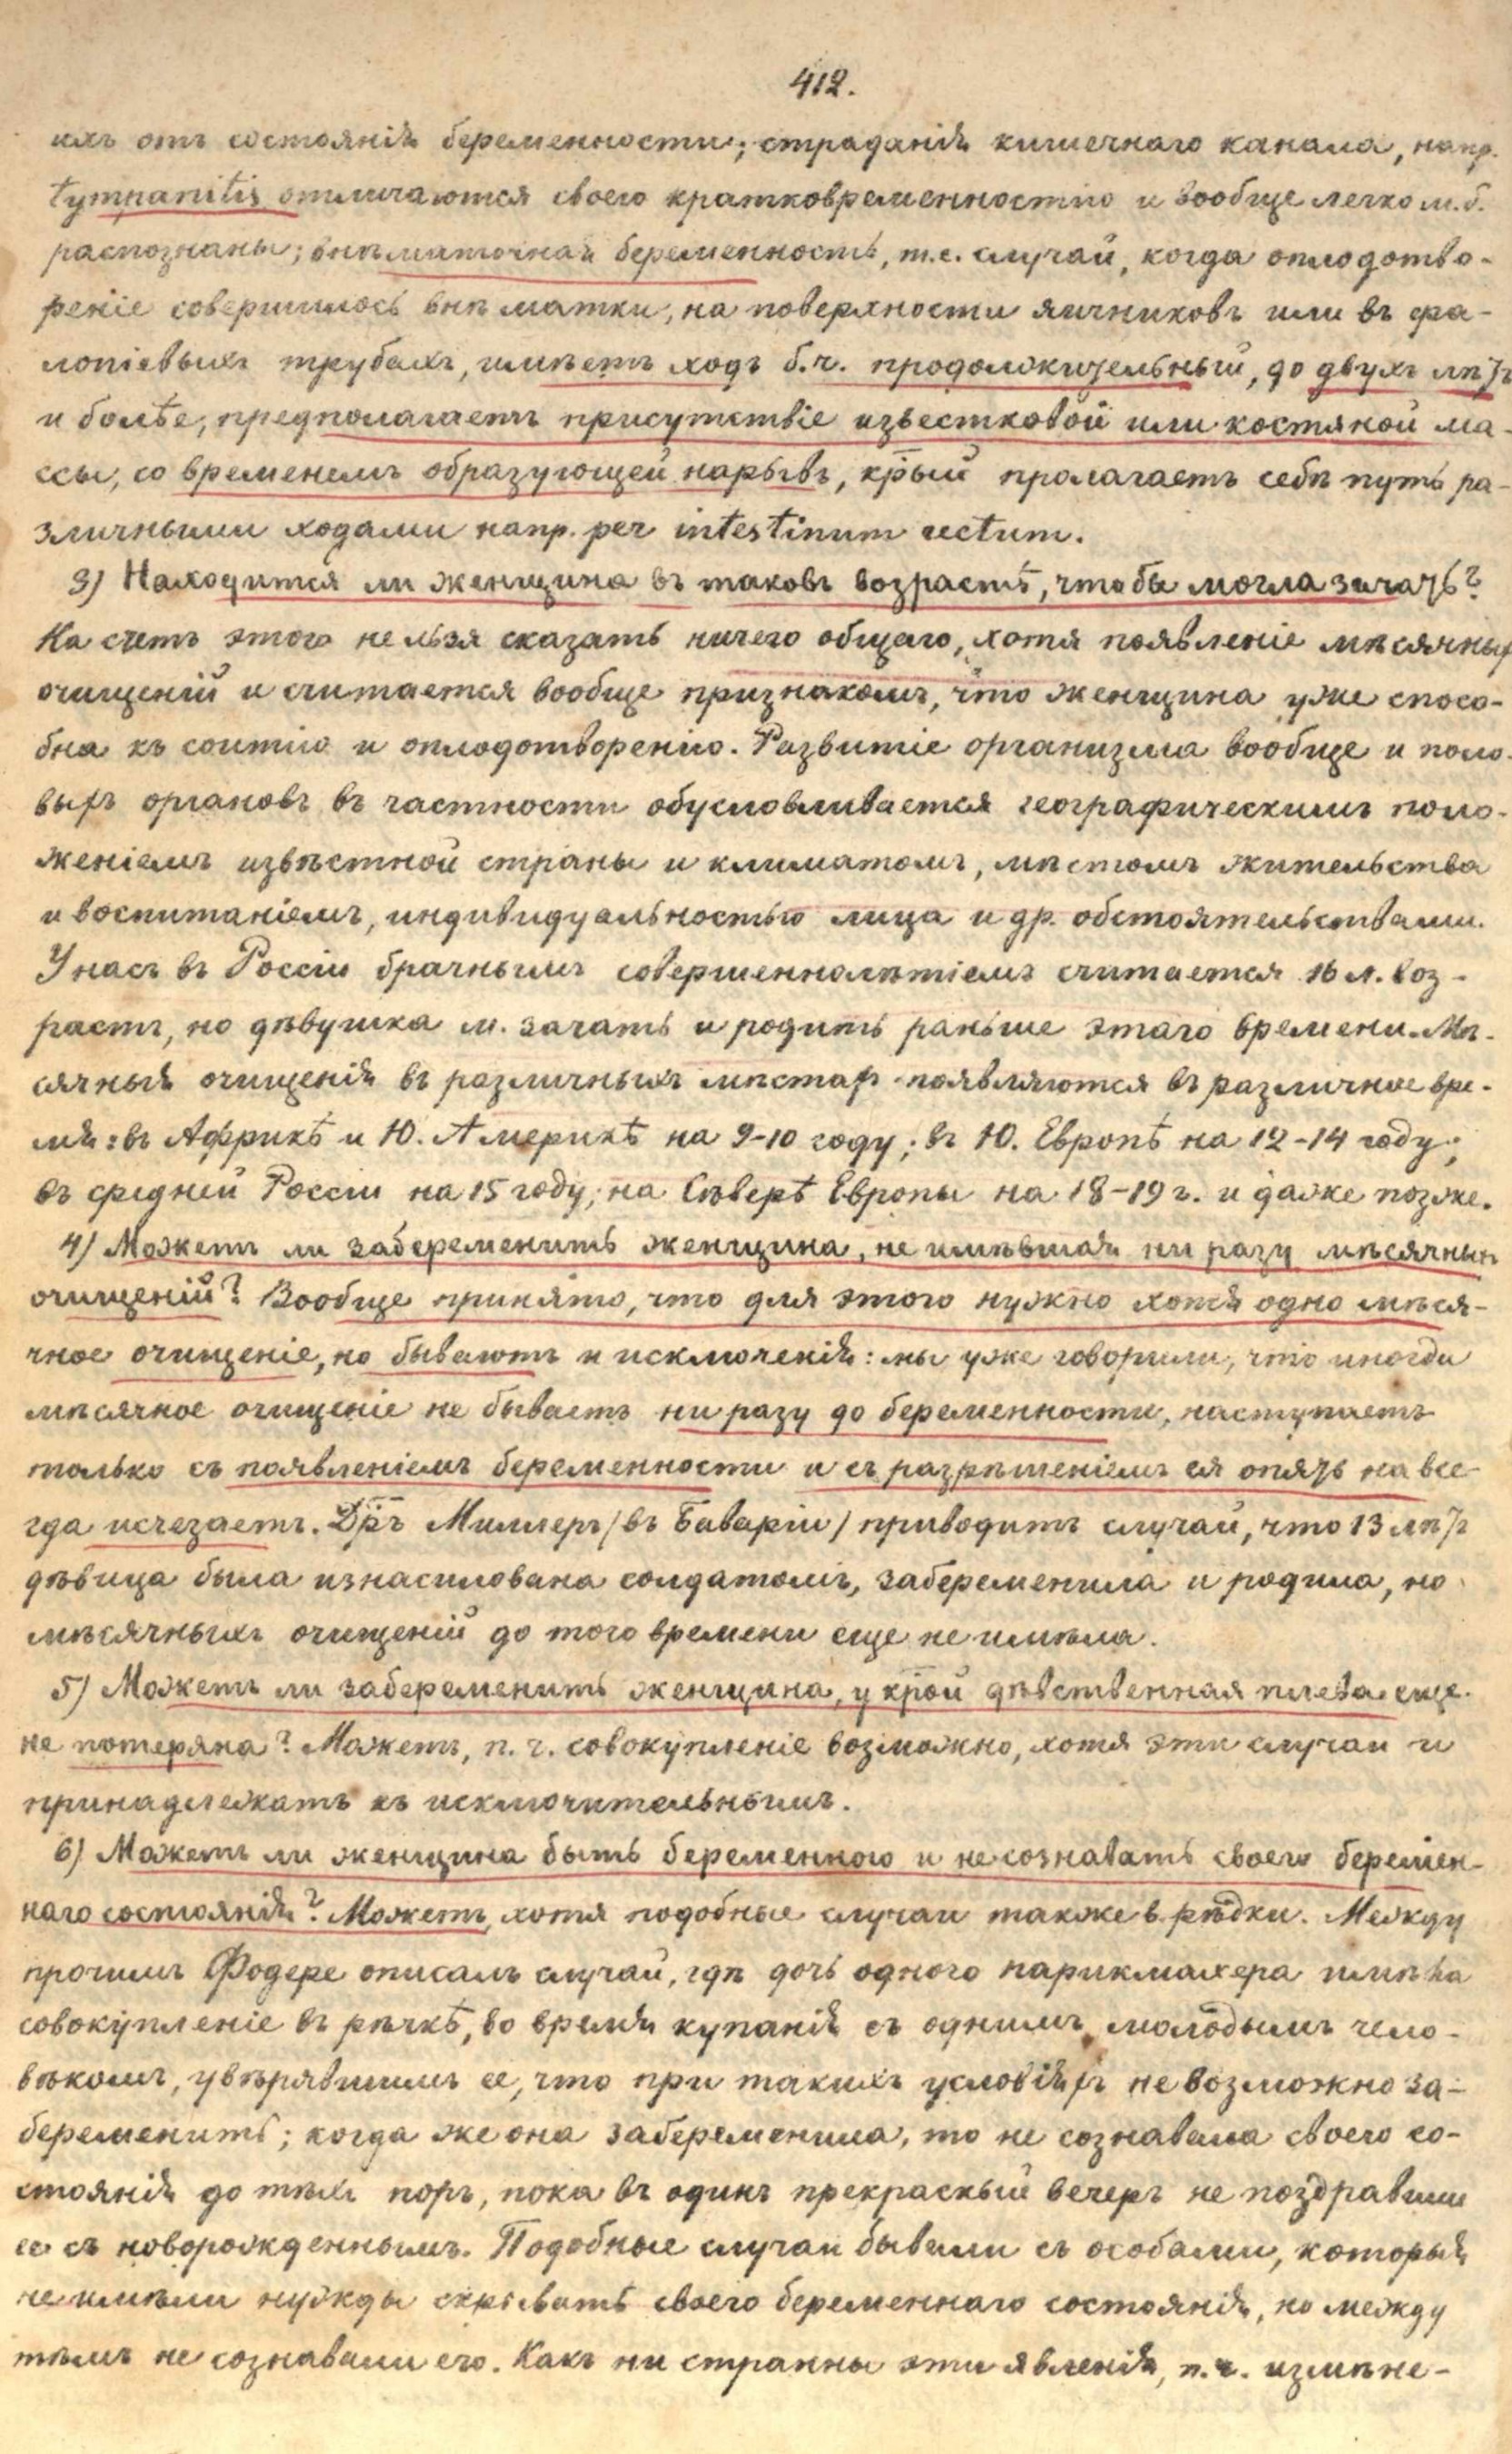 412.
ихъ отъ состоянія беременности; страданія кишечнаго канала, напр.
tympanitis отличаются своею кратковременностію и вообще легко м. б.
распознаны; внѣматочная беременность, т. е. случай, когда оплодотво-
реніе совершилось внѣ матки, на поверхности яичниковъ или въ фа-
лопіевыхъ трубахъ, имѣетъ ходъ б. ч. продолжительный, до двухъ лѣтъ
и болѣе, предполагаетъ присутствіе известковой или костяной ма-
ссы, со временемъ образующей нарывъ, крый пролагаетъ себѣ путь ра-
зличными ходами напр. per intestinum rectum.
3) Находится ли женщина въ таковъ возрастѣ, чтобы могла зачать?
На счетъ этого нельзя сказать ничего общаго, хотя появленіе мѣсячныхъ
очищеній и считается вообще признакомъ, что женщина уже спосо-
бна къ соитію и оплодотворенію. Развитіе организма вообще и поло-
выхъ органовъ въ частности обусловливается географическимъ поло-
женіемъ извѣстной страны и климатомъ, мѣстомъ жительства
и воспитаніемъ, индивидуальностью лица и др. обстоятельствами.
У насъ въ Россіи брачнымъ совершеннолѣтіемъ считается 16 л. воз-
растъ, но дѣвушка м. зачать и родить раньше этаго времени. Мѣ-
сячныя очищенія въ различныхъ мѣстахъ появляются въ различное вре-
мя: въ Африкѣ и Ю. Америкѣ на 9-10 году; въ Ю. Европѣ на 12-14 году;
въ средней Россіи на 15 году; на Сѣверѣ Европы на 18-19 г. и даже позже.
4) Можетъ ли забеременить женщина, не имѣвшая ни разу мѣсячныхъ
очищеній? Вообще принято, что для этого нужно хотя одно мѣся-
чное очищеніе, но бываютъ и исключенія: мы уже говорили, что иногда
мѣсячное очищеніе не бываетъ ни разу до беременности, наступаетъ
только съ появленіемъ беременности и съ разрѣшеніемъ ея опять на все-
гда исчезаетъ. Дръ Миллеръ /въ Баваріи/ приводитъ случай, что 13 лѣтъ
дѣвица была изнасилована солдатомъ, забеременила и родила, но
мѣсячныхъ очищеній до того времени еще не имѣла.
5) Можетъ ли забеременить женщина, у крой дѣвственная плева еще
не потеряна? Можетъ, п. ч. совокупленіе возможно, хотя эти случаи и
принадлежатъ къ исключительнымъ.
6) Можетъ ли женщина быть беременною и не сознавать своего беремен-
наго состоянія? Можетъ, хотя подобные случаи также в. рѣдки. Между
прочимъ Фодере описалъ случай, гдѣ дочь одного парикмахера имѣла
совокупленіе въ рѣчкѣ, во время купанія съ однимъ молодымъ чело-
вѣкомъ, увѣрявшимъ ее, что при такихъ условіяхъ невозможно за-
беременить; когда же она забеременила, то не сознавала своего со-
стоянія до тѣхъ поръ, пока въ одинъ прекрасный вечеръ не поздравили
ее съ новорожденнымъ. Подобные случаи бывали съ особами, которыя
не имѣли нужды скрывать своего беременнаго состоянія, но между
тѣмъ не сознавали его. Какъ ни странны эти явленія, п. ч. измѣне-